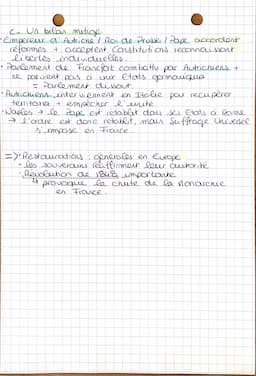 c- Un bilan mitigé
• Empereur d'Autriche / Roi de Prusse / Pape accordent
réformes + acceptent Constitutions reconnaissant
libertés individuelles.
• Parlement de Francfort combattu par Autrichiens +
ne parvient pas à unir Etats germaniques
= Parlement dissout
• Autrichiens interviennent en Italie pour récupérer
territoires + empêcher l'unité
• Naples + le Pape est rétablit dans ses Etats à Rome
→ l'ordre est donc rétablit, mais Suffrage Universel
s'impose en France.
=> • Restaurations générales en Europe
• les souverains réaffirment leur autorité
• Révolution de 1848 importante
↳ provoque la chute de la Monarchie
en France.